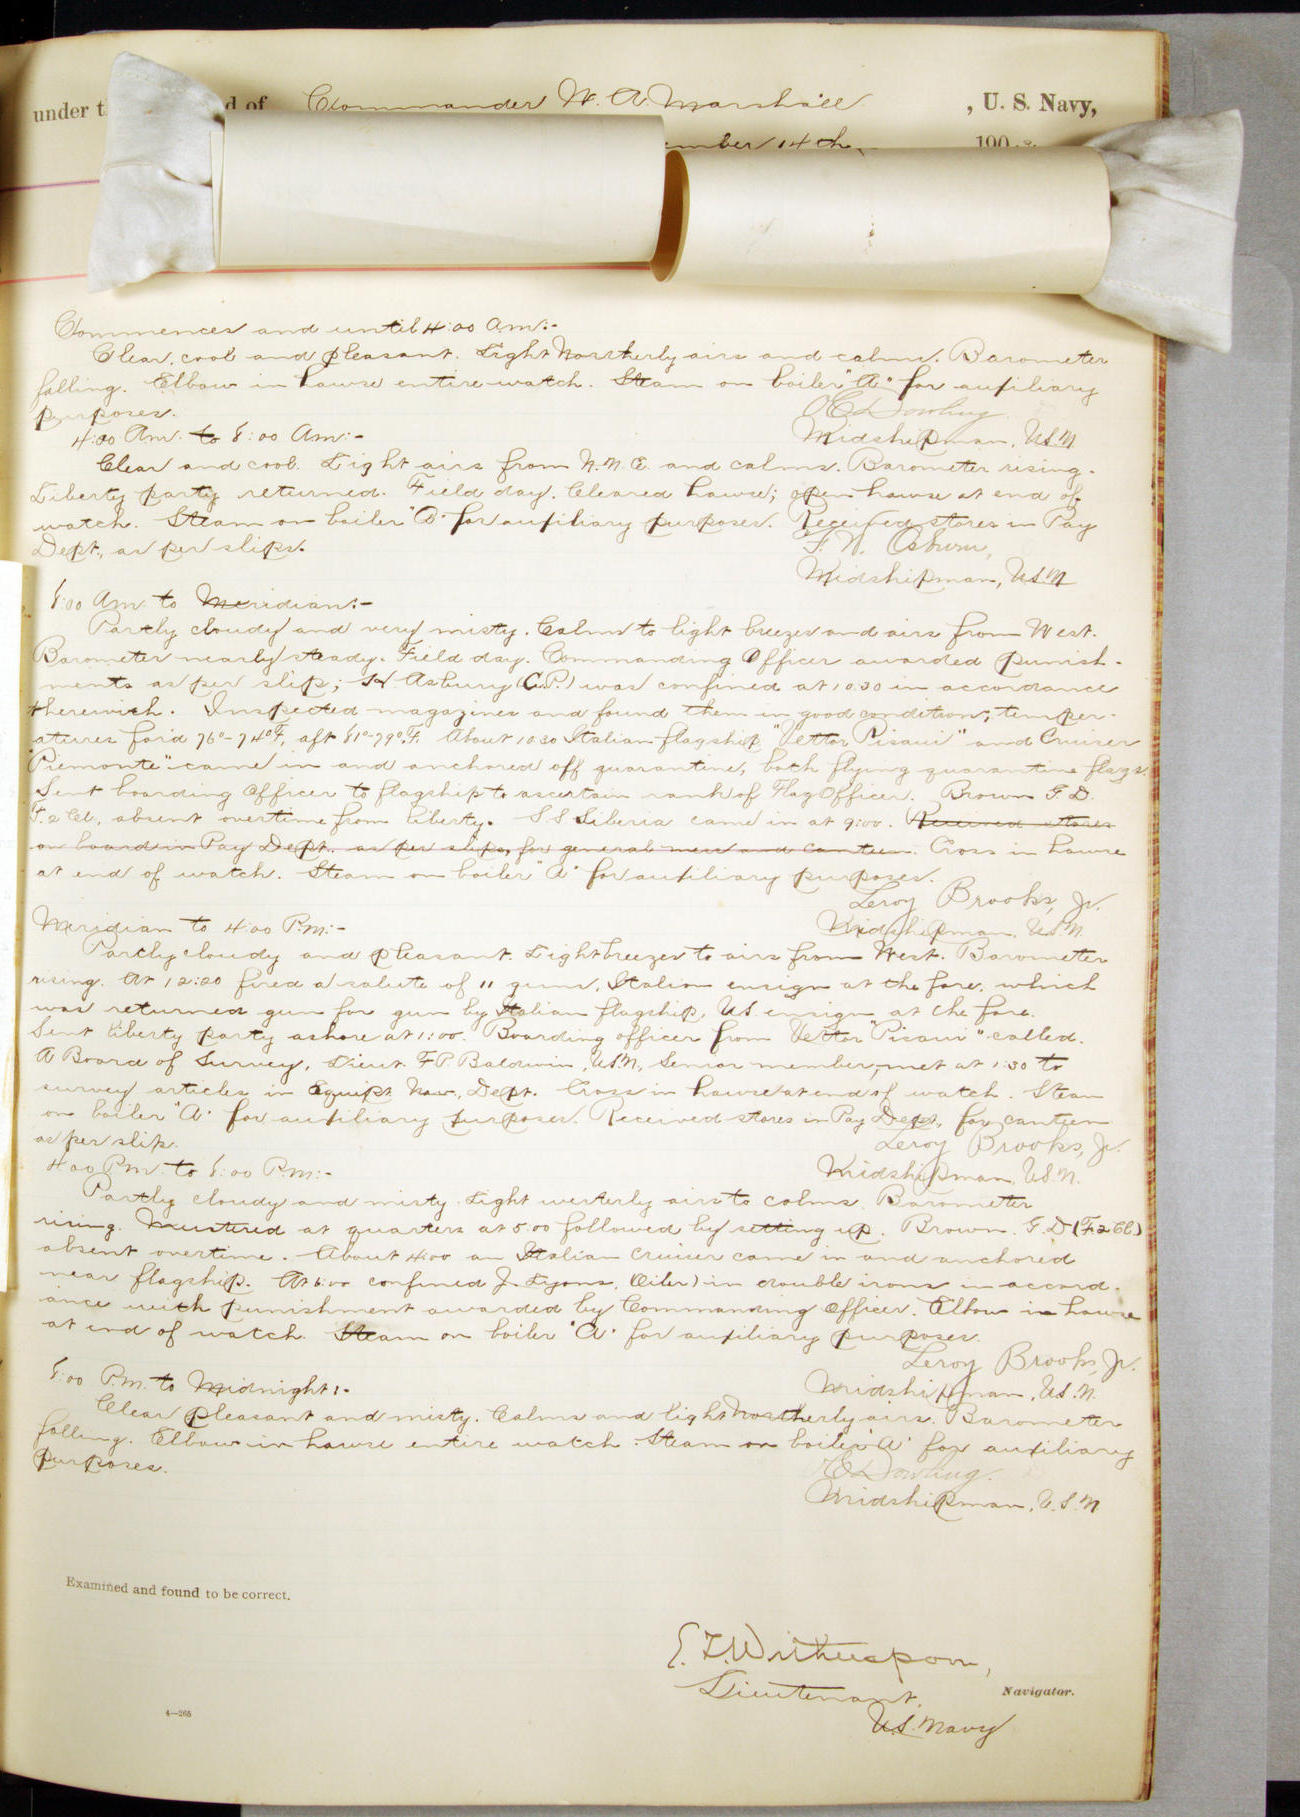 under t
d of Commander W. A. Marshall , U. S. Navy,
ember 14th, 190
Commences and until 4:00 Am:-
Clear, cool and pleasant. Light Northerly airs and calms. Barometer
falling. Elbow in hawse entire watch. Steam on boiler "A" for auxiliary
purposes.
Dowling
4:00 Am. to 8:00 Am:-
Midshipman, USN
Clear and cool. Light airs from N.N.E. and calms. Barometer rising.
Liberty party returned. Field day. Cleared hawse; open hawse at end of
watch. Steam on boiler "A" for auxiliary purposes. Received stores in Pay
Dept., as per slips.
F. W. Osburn,
Midshipman, USN
8:00 Am to Meridian:-
Partly cloudy and very misty. Calms to light breezes and airs from West.
Barometer nearly steady. Field day. Commanding Officer awarded punish-
ments as per slip; Asbury (C.P.) was confined at 10.30 in accordance
therewith. Inspected magazines and found them in good condition; temper-
atures for'd 76°-74°F, aft 81°-79°F. About 10 30 Italian flagship "Vettor Pisani" and Cruiser
"Piemonte" came in and anchored off quarantine, both flying quarantine flags.
Sent boarding Officer to flagship to ascertain rank of Flag Officer. Brown F. D.
F. 2 Cl., absent overtime from liberty. S S Siberia came in at 9:00. Received stores
on board in Pay Dept. as per slips, for general mess and canteen. Cross in hawse
at end of watch. Steam on boiler "A" for auxiliary purposes.
Leroy Brooks, Jr.
Meridian to 4:00 P.M:-
Midshipman, U.S.N.
Partly cloudy and pleasant. Light breezes to airs from West. Barometer
rising. At 12:20 fired a salute of 11 guns, Italian ensign at the fore, which
was returned gun for gun by Italian flagship, U.S. ensign at the fore.
Sent liberty party ashore at 1:00. Boarding officer from "Vettor Pisani" called.
A Board of Survey, Lieut. F. P. Baldwin, USN, Senior member, met at 1:30 to
survey articles in Equipt. Nav. Dept. Cross in hawse at end of watch. Steam
on boiler "A" for auxiliary purposes. Received stores in Pay Dept, for canteen
as per slip.
Leroy Brooks, Jr.
4:00 P.m. to 8:00 P.M:-
Midshipman, U.S.N.
Partly cloudy and misty. Light westerly airs to calms. Barometer
rising. Mustered at quarters at 5:00 followed by setting up. Brown F. D (F.2 Cl.)
absent overtime. About 4:00 an Italian cruiser came in and anchored
near flagship. At 6:00 confined J. Lyons, (Oiler) in double irons in accord-
ance with punishment awarded by Commanding Officer. Elbow in hawse
at end of watch. Steam on boiler "A" for auxiliary purposes.
Leroy Brooks, Jr.
8:00 P.M. to Midnight:-
Midshipman, U.S.N.
Clear pleasant and misty. Calms and light Northerly airs. Barometer
falling. Elbow in hawse entire watch. Steam on boiler "A" for auxiliary
purposes.
Dowling.
Midshipman, U.S.N
Examined and found to be correct.
E. T. Witherspoon,
Lieutenant,
Navigator.
U.S. Navy
4—265